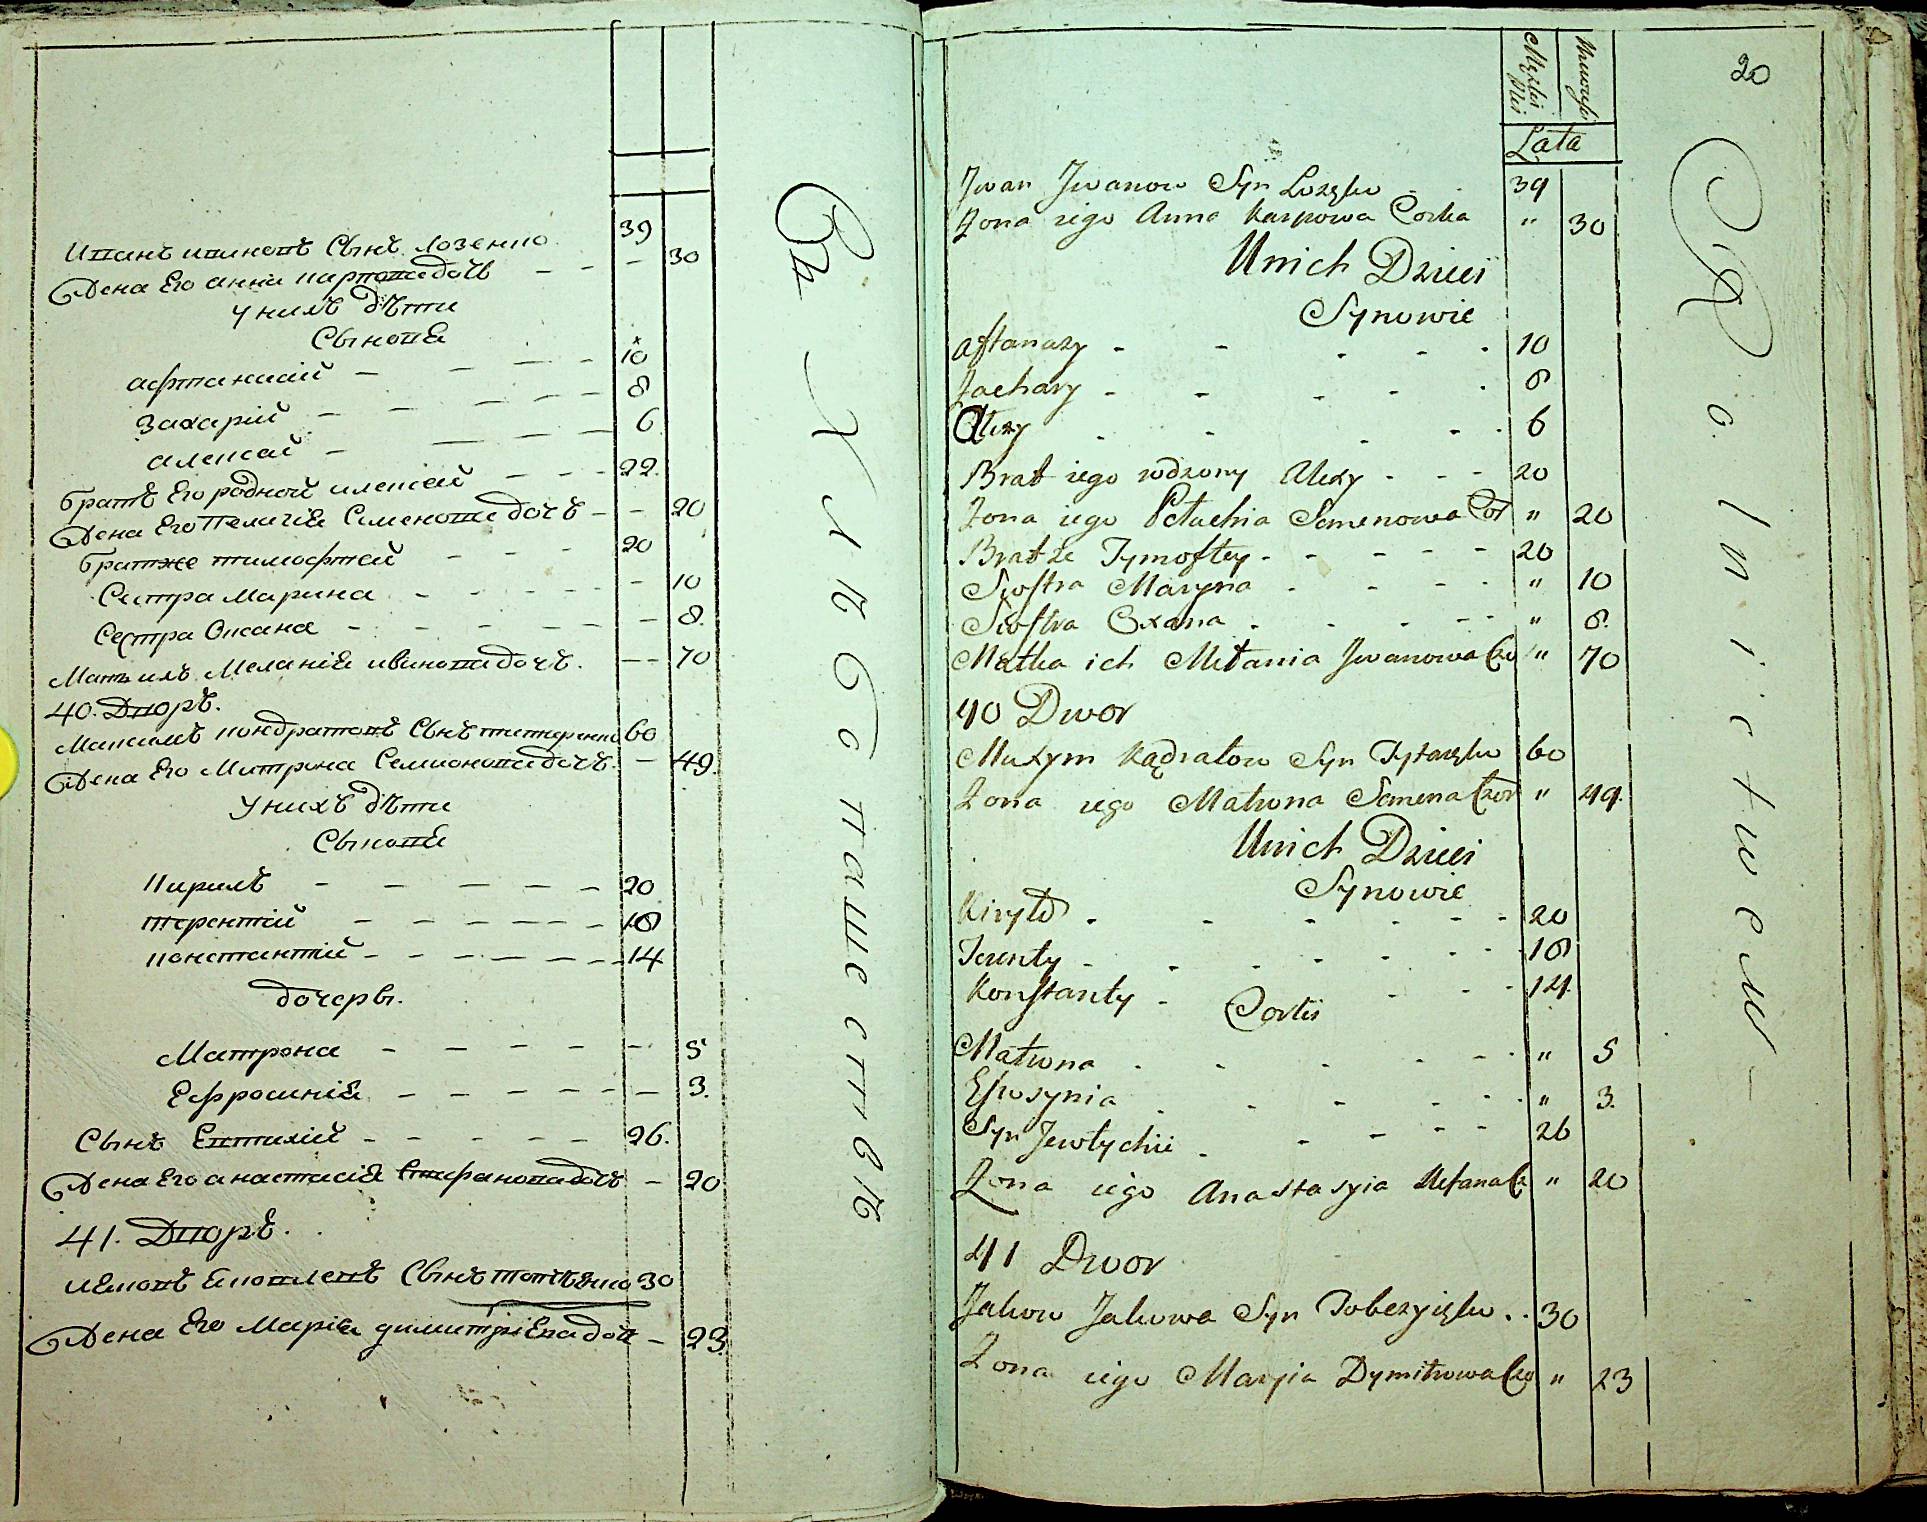 39
Иванъ ивановъ Сынъ Лозенко
30
Жена Его анна карповадочь
у нихъ дѣти
Сыновя
афтанасий 10
Захарий 8
алексей 6
братъ Его родной алексей 22
Жена Его Пелагия Семеновадочь 20
братже тимофтей 20
Сестра Марина 10
Сестра Оксана 8.
Мать ихъ Мелания ивановадочь. 70
40. Дворъ.
Максимъ кондратовъ Сынъ титаренко 60
Жена Его Митрона Семионовадочь. 49.
Унихъ дѣти
Сыновя
Кирилъ 20
терентий 18
константий 14
дочеры.
Матрона 5
Ефросиния 3.
Сынъ Евтихий 26.
Жена Его анастасия Стефановадочь 20
41. Дворъ.
Яковъ Яковлевъ Сынъ 30
Жена Его Мария димитриевадоч 23.
Въ Хлѣбопашествѣ
20
Męzkiei Plci
Lata
Jwan Jwanow Syn Lozęko 39
Zona iego Anna Karpowa Corka " 30
Unich Dzieci
Synowie
Aftanazy 10
Zachary 8
Alexy 6
Brat iego rodzony Alexy 20
Zona iego Pełachia Semenowa Cor " 20
Bratże Tymoftey 20
Siostra Maryna " 10
Siostra Oxana " 8.
Matka ich Mełania Jwanowa Czo " 70
40 Dwor
Maxym Kądratow Syn Tytaręko 60
Zona iego Matrona Semena Czor " 49.
Unich Dzieci
Synowie
Kiryło 20
Terenty 18
Konstanty 14.
Corki
Matrona " 5
Efrosynia " 3.
Syn Jewtychii 26
Zona iego Anastasyia Stefana Cz " 20
41 Dwor
Jakow Jakowa Syn 30
Zona iego Maryia Dymitrowa Czo " 23
w Rolnictwem